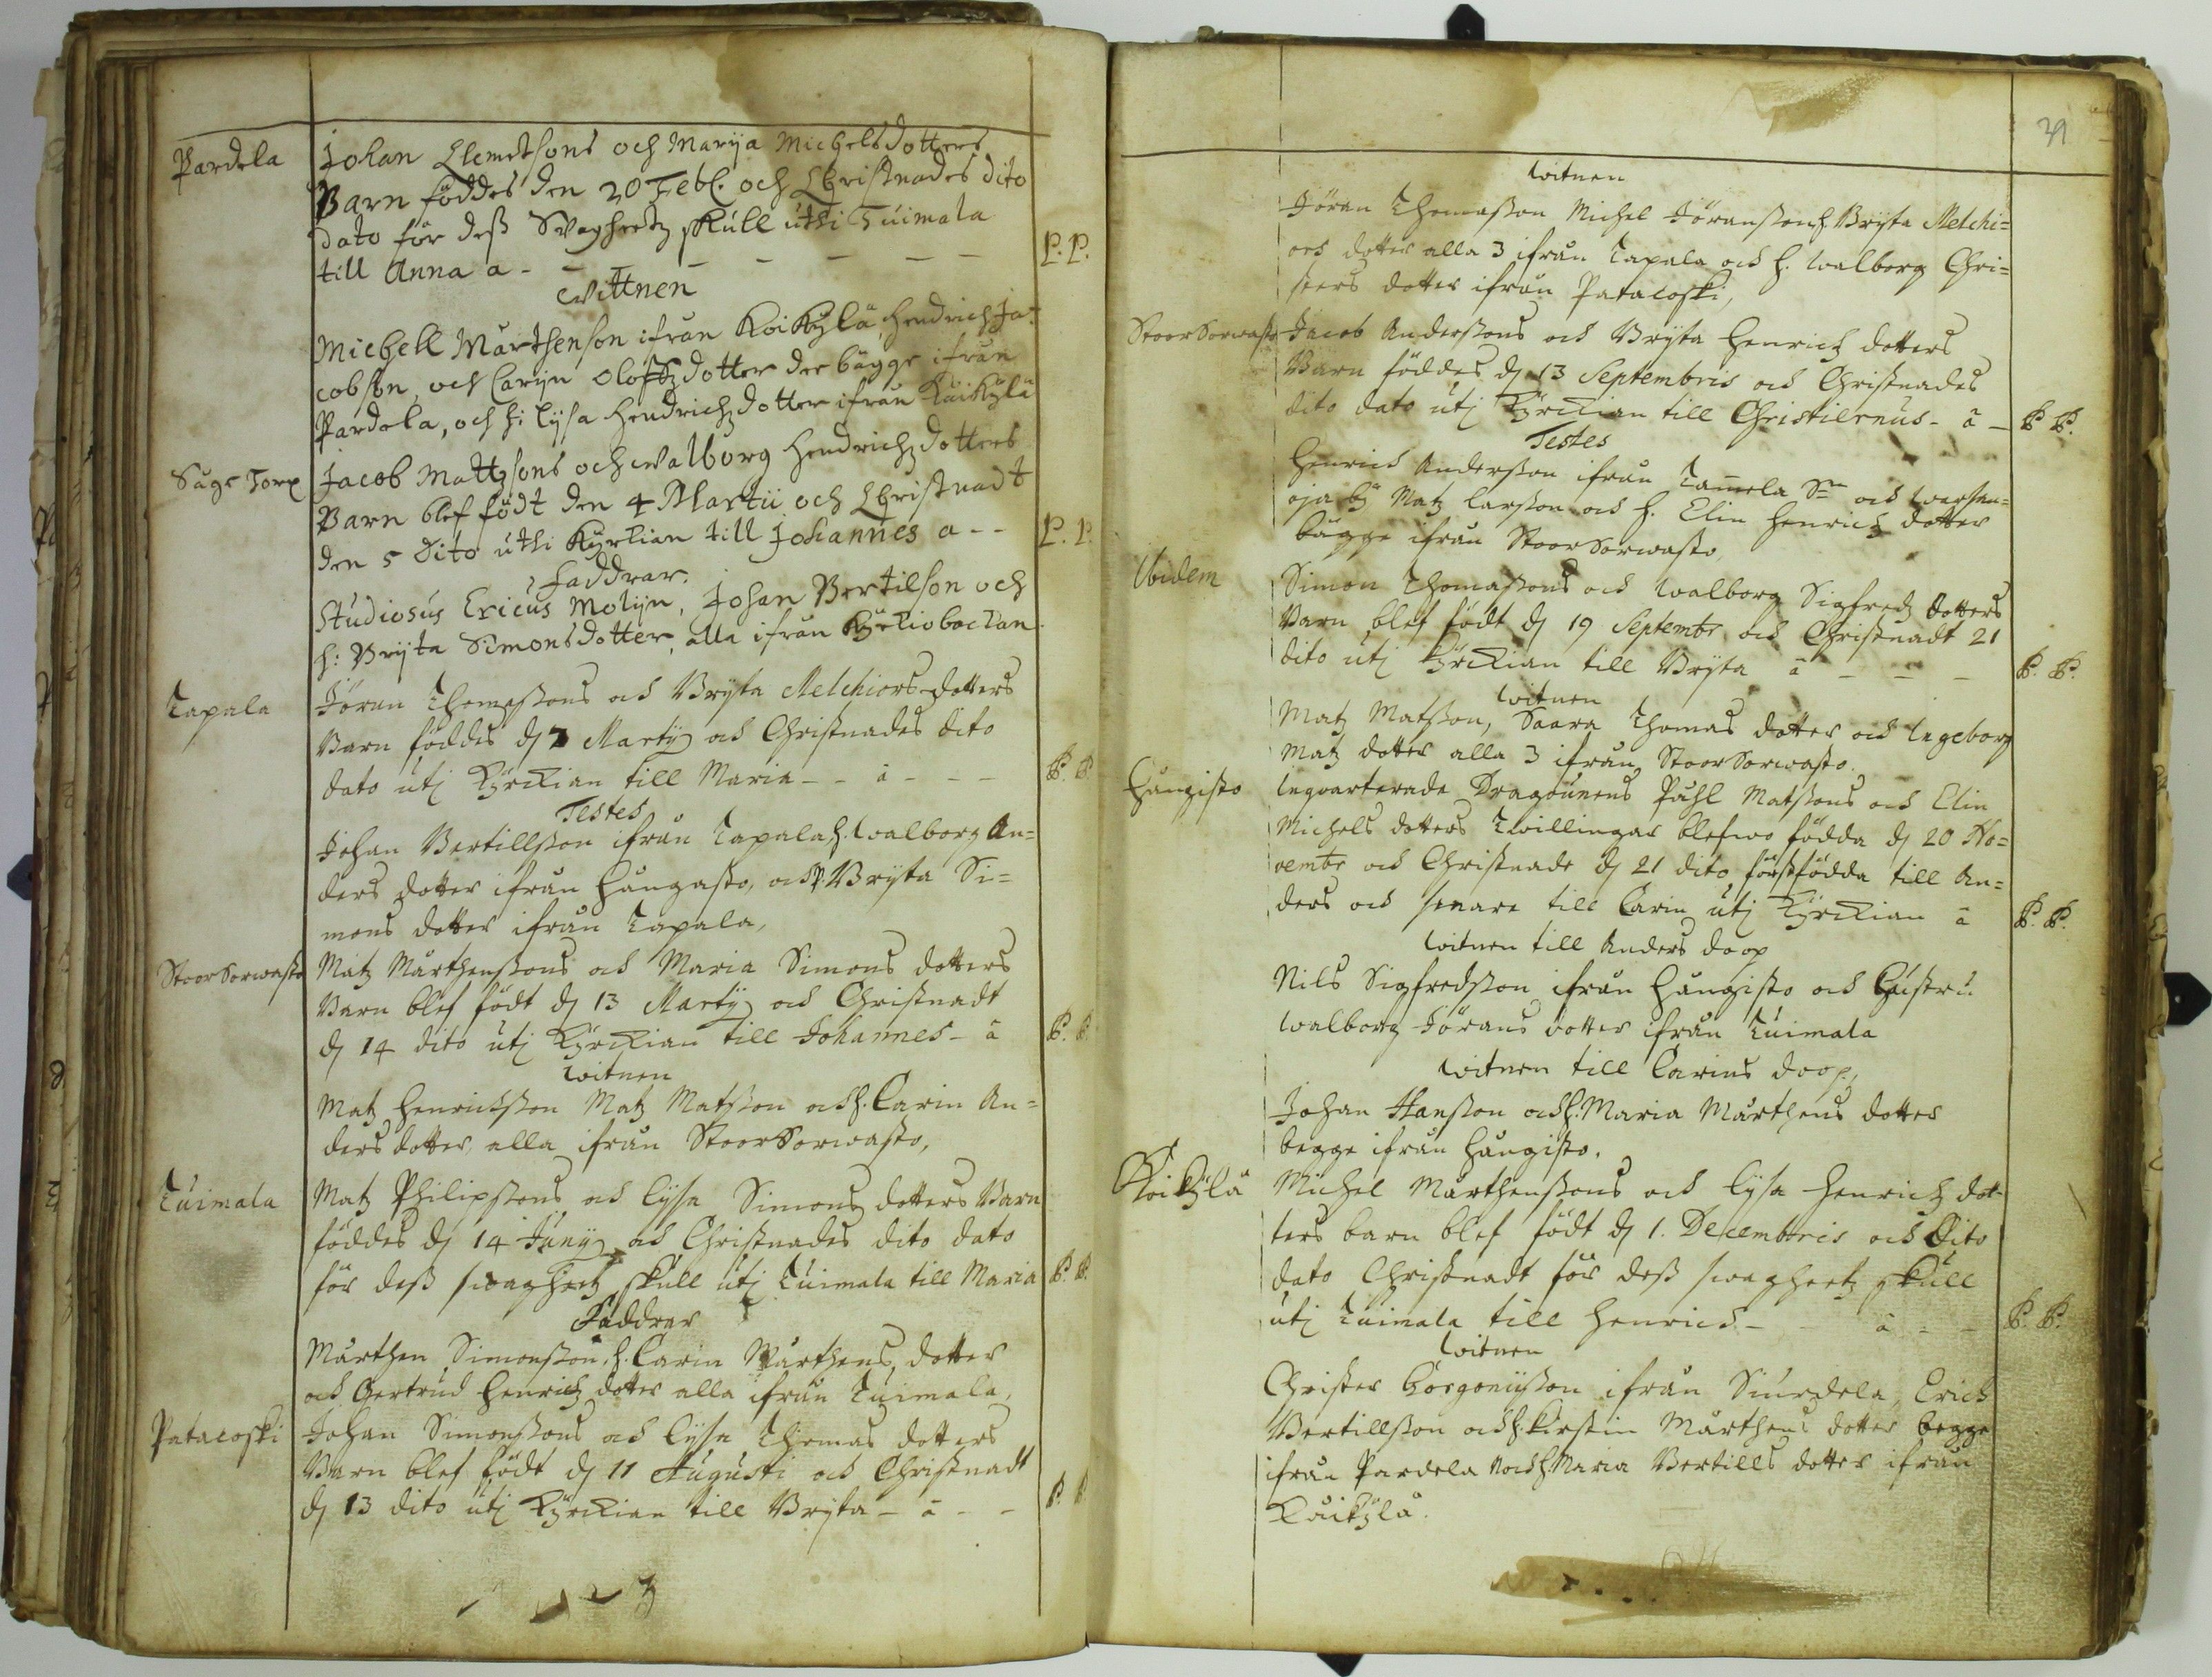 Pardola
Johan Clemetsons och Marija Michelsdotters
Barn föddes den 20 Febl. och Christnades dito
dato för dess Svaghetz skull uthi Tuimala
till Anna a - - - - - - - P. P.
Wittnen
Michell Mårthenson ifrån Koikylä, Hendrich Ja-
cobson, och Carijn Oloffzdotter der bägge ifrån
Pardola, och h: Lijsa Hendrichzdotter ifrån Kåikylä
Såge Torp
Jacob Mattzsons och Walborg Hendrichzdotters
Barn blef födt den 4 Martii och Christnadt
den 5 Dito uthi Kyrkian till Johannes a - - P. P.
Faddrar.
Studiosus Ericus Molijn, Johan Bertilson och
h: Brijta Simonsdotter, alla ifrån Kyrkiobackan.
Tapala
Jöran Thomassons och Brijta Melchiors dotters
Barn föddes dj 7 Martij och Christnades dito
dato utj Kyrckian till Maria - - â - - - P. P.
Testes
Johan Bertillsson ifrån Tapala h. Walborg An=
ders dotter ifrån Hångasto, och P. Brijta Si=
mons dotter ifrån Tapala,
StoorSorwasto
Matz Mårthenssons och Maria Simons dotters
Barn blef födt dj 13 Martij och Christnadt
dj 14 dito utj Kyrckian till Johannes - â P. P.
Witnen
Matz Henrichsson Matz Matsson och h. Carin An=
ders dotter, alla ifrån StoorSorwasto,
Tuimala
Matz Philipssons och Lijsa Simons dotters Barn
föddes dj 14 Junij och Christnades dito dato
för dess swaghetz skull utj Tuimala till Maria P. P.
Faddrar
Mårthen Simonsson, h. Carin Mårthens dotter
och Gertrud Henrichz dotter alla ifrån Tuimala,
Patacoski
Johan Simonssons och Lijsa Thomas dotters
Barn blef födt dj 11 Augusti och Christnadt
dj 13 dito utj Kyrckian till Brijta - â - - P. P.
39
Witnen
Jöran Thomasson Michel Jöransson h. Brijta Melchi=
ors dotter alla 3 ifrån Tapala och h. Walborg Chri=
sters dotter ifrån Patacoski,
StoorSorwasto
Jacob Anderssons och Brijta Henrichz dotters
Barn föddes dj 13 Septembris och Christnades
dito dato utj Kyrckian till Christiernus - â - P. P.
Testes
Henrich Andersson ifrån Tammela Sn och
oja by Matz Larsson och h. Elin Henrichz dotter
bägge ifrån StoorSorwasto,
Ibidem
Simon Thomassons och Walborg Sigfredz dotters
Barn blef födt dj 19 Septembr och Christnadt 21
dito utj Kyrckian till Brijta â - - - P. P.
Witnen
Matz Matsson, Saara Thomas dotter och Ingeborg
Matz dotter alla 3 ifrån StoorSorwasto.
Hångisto
Inqvarterade Dragounens Påhl Matssons och Elin
Michels dotters Twillingar blefwo födda dj 20 No=
vembr och Christnade dj 21 dito förstfödda till An=
ders och senare till Carin utj Kyrckian â P. P.
Witnen till Anders doop
Nils Sigfredsson ifrån Hångisto och
Walborg Jörans dotter ifrån Tuimala
Witnen till Carins doop,
Johan Hansson och h. Maria Mårthens dotter
begge ifrån Hångisto.
Koikylä
Michel Mårthenssons och Lijsa Henrichz dot-
ters barn blef födt dj 1. Decembris och Dito
dato Christnadt för dess swagheetz skull
utj Tuimala till Henrich - â - - P. P.
Witnen
Christer Gorgoniisson ifrån Siurdela, Erich
Bertillsson och h. Kirstin Mårthens dotter begge
ifrån Pardela och h. Maria Bertills dotter ifrån
Koikylä.